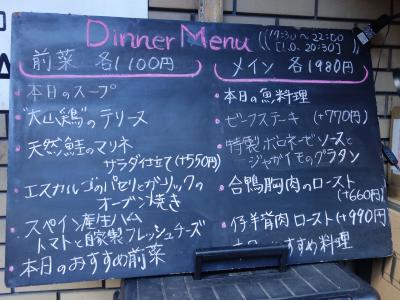 Dinner Menu
17:30～22:00
[L.O-20:30]
前菜 各1100円
本日のスープ
"大山鶏"のテリーヌ
天然鮭のマリネ
サラダ仕立て(+550円)
エスカルゴのパセリとガーリックの
オーブン焼き
スペイン産生ハム
トマトと自家製フレッシュチーズ
本日のおすすめ前菜
メイン 各1980円
本日の魚料理
ビーフステーキ (+770円)
特製ボロネーゼソースと
ジャガイモのグラタン
合鴨胸肉のロースト
(+660円)
仔羊背肉ロースト(+990円)
すすめ料理